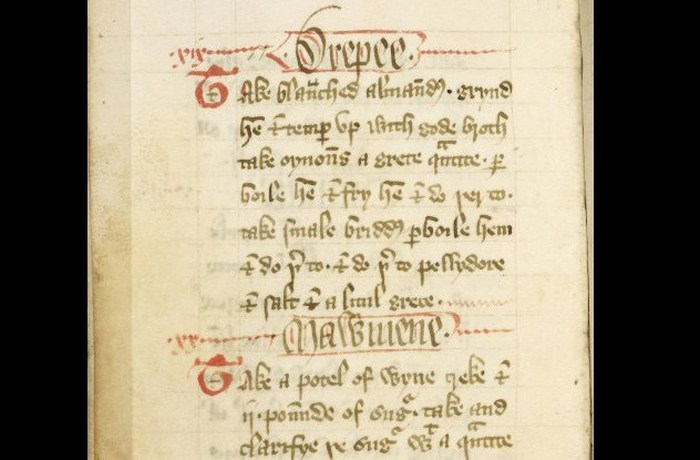 .xix. Drepee.
Take blau̅ched alma̅ndꝭ. grynd
he̅ ⁊ temꝑ vp with gode broth
take oyno̅ns a grete qᵃ̅tite. ꝑ
boile he̅ ⁊ fry he̅ ⁊ do þerto.
take smale briddꝭ ꝑboile hem
⁊ do þto. ⁊ do þto pellydore
⁊ salt ⁊ a litul grece.
.xx. Mawmene.
Take a potel of wyne greke ⁊
ij. pou̅nde of sugᵉ. take and
clarifye þe sugᵉ wᵗ a qᵃ̅tite